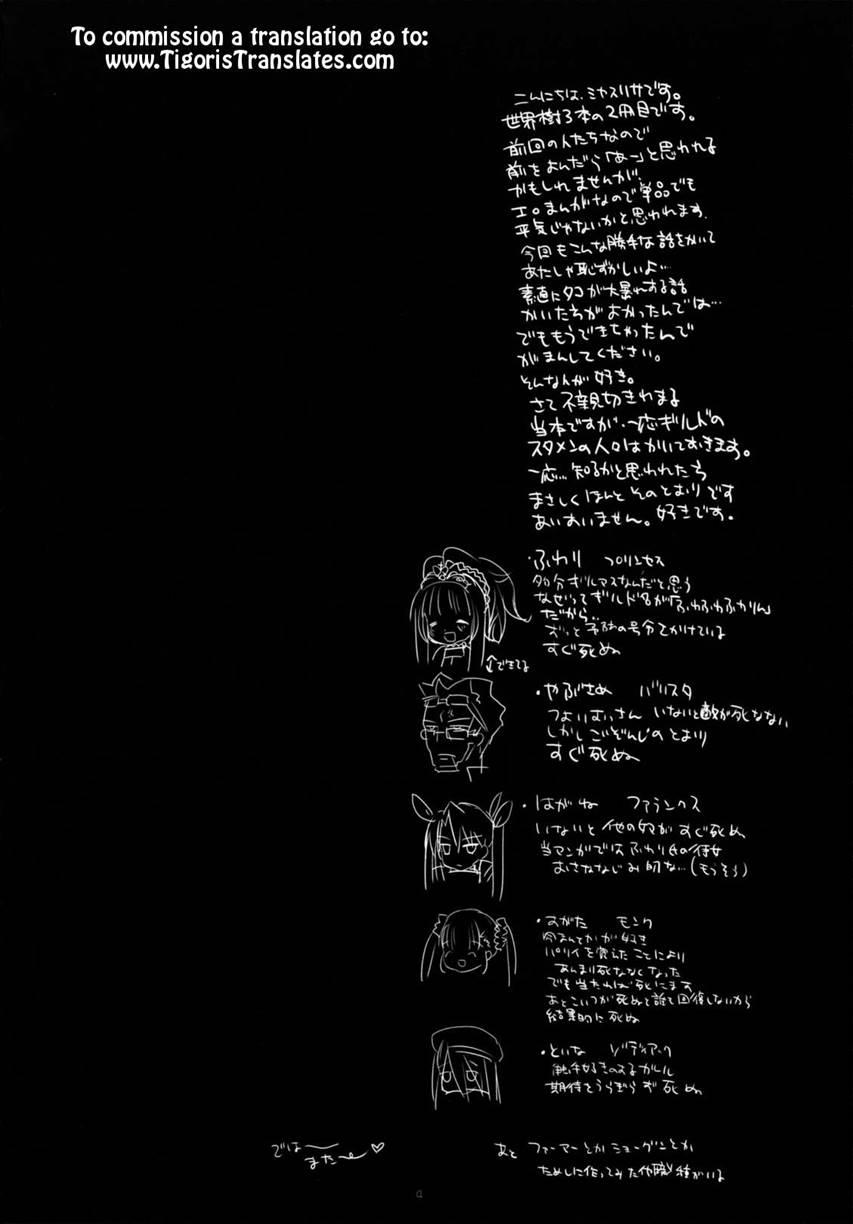 To commission a translation go to:
www.TigorisTranslates.com
こんにちは、ミヤスリサです。
世界樹3本の2冊目です。
前回の人たちなので
前をよんだら「あー」と思われる
かもしれませんが、
エロまんがなので単品でも
平気じゃないかと思われます。
今回もこんな勝手な話をかいて
あたしゃ恥ずかしいよ…
素直にタコが大暴れする話
かいたちがよかったんでは…
でももうできちゃったんで
がまんしてください。
そんな人が好き。
さて不親切きわまる
当本ですが、一応ギルドの
スタメンの人々はかいておきます。
一応…知るかと思われたら
まさしくほんとそのとおりです
あいすいません。好きです。
・ふわり プリンセス
多分ギルマスなんだと思う
なぜってギルド名が「ふわふわふかりん」
だから…
ずっと予防の号令かけている
すぐ死ぬ
↑できてる
・やぶさめ バリスタ
つよいおっさん いないと敵が死なない
しかしごぞんじのとおり
すぐ死ぬ
・はがね ファランクス
いないと他の奴がすぐ死ぬ
当マンガではふわり姫の侍女
おさななじみ的な…(もうそう)
・すがた モンク
パリイを覚えたことにより
あんまり死ななくなった
でも当たれば死にます
あとこいつが死ぬと誰も回復しないから
結果的に死ぬ
・といな ゾディアック
触手好きのメガール
期待をうらぎらず死ぬ
あと ファーマーとかショーグンとか
ためしに作ってみた他職種がいる
では〜
また〜♡